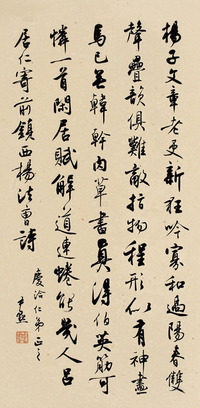 楊子文章老更新狂吟寡和過陽春雙
聲疊韻俱難敵拄物程形似有神畫
馬已無韓幹肉草書真得伯英筋可
憐一首閑居賦解道連蜷能幾人呂
居仁寄前鎮西楊法曹詩
慶洽仁弟正之